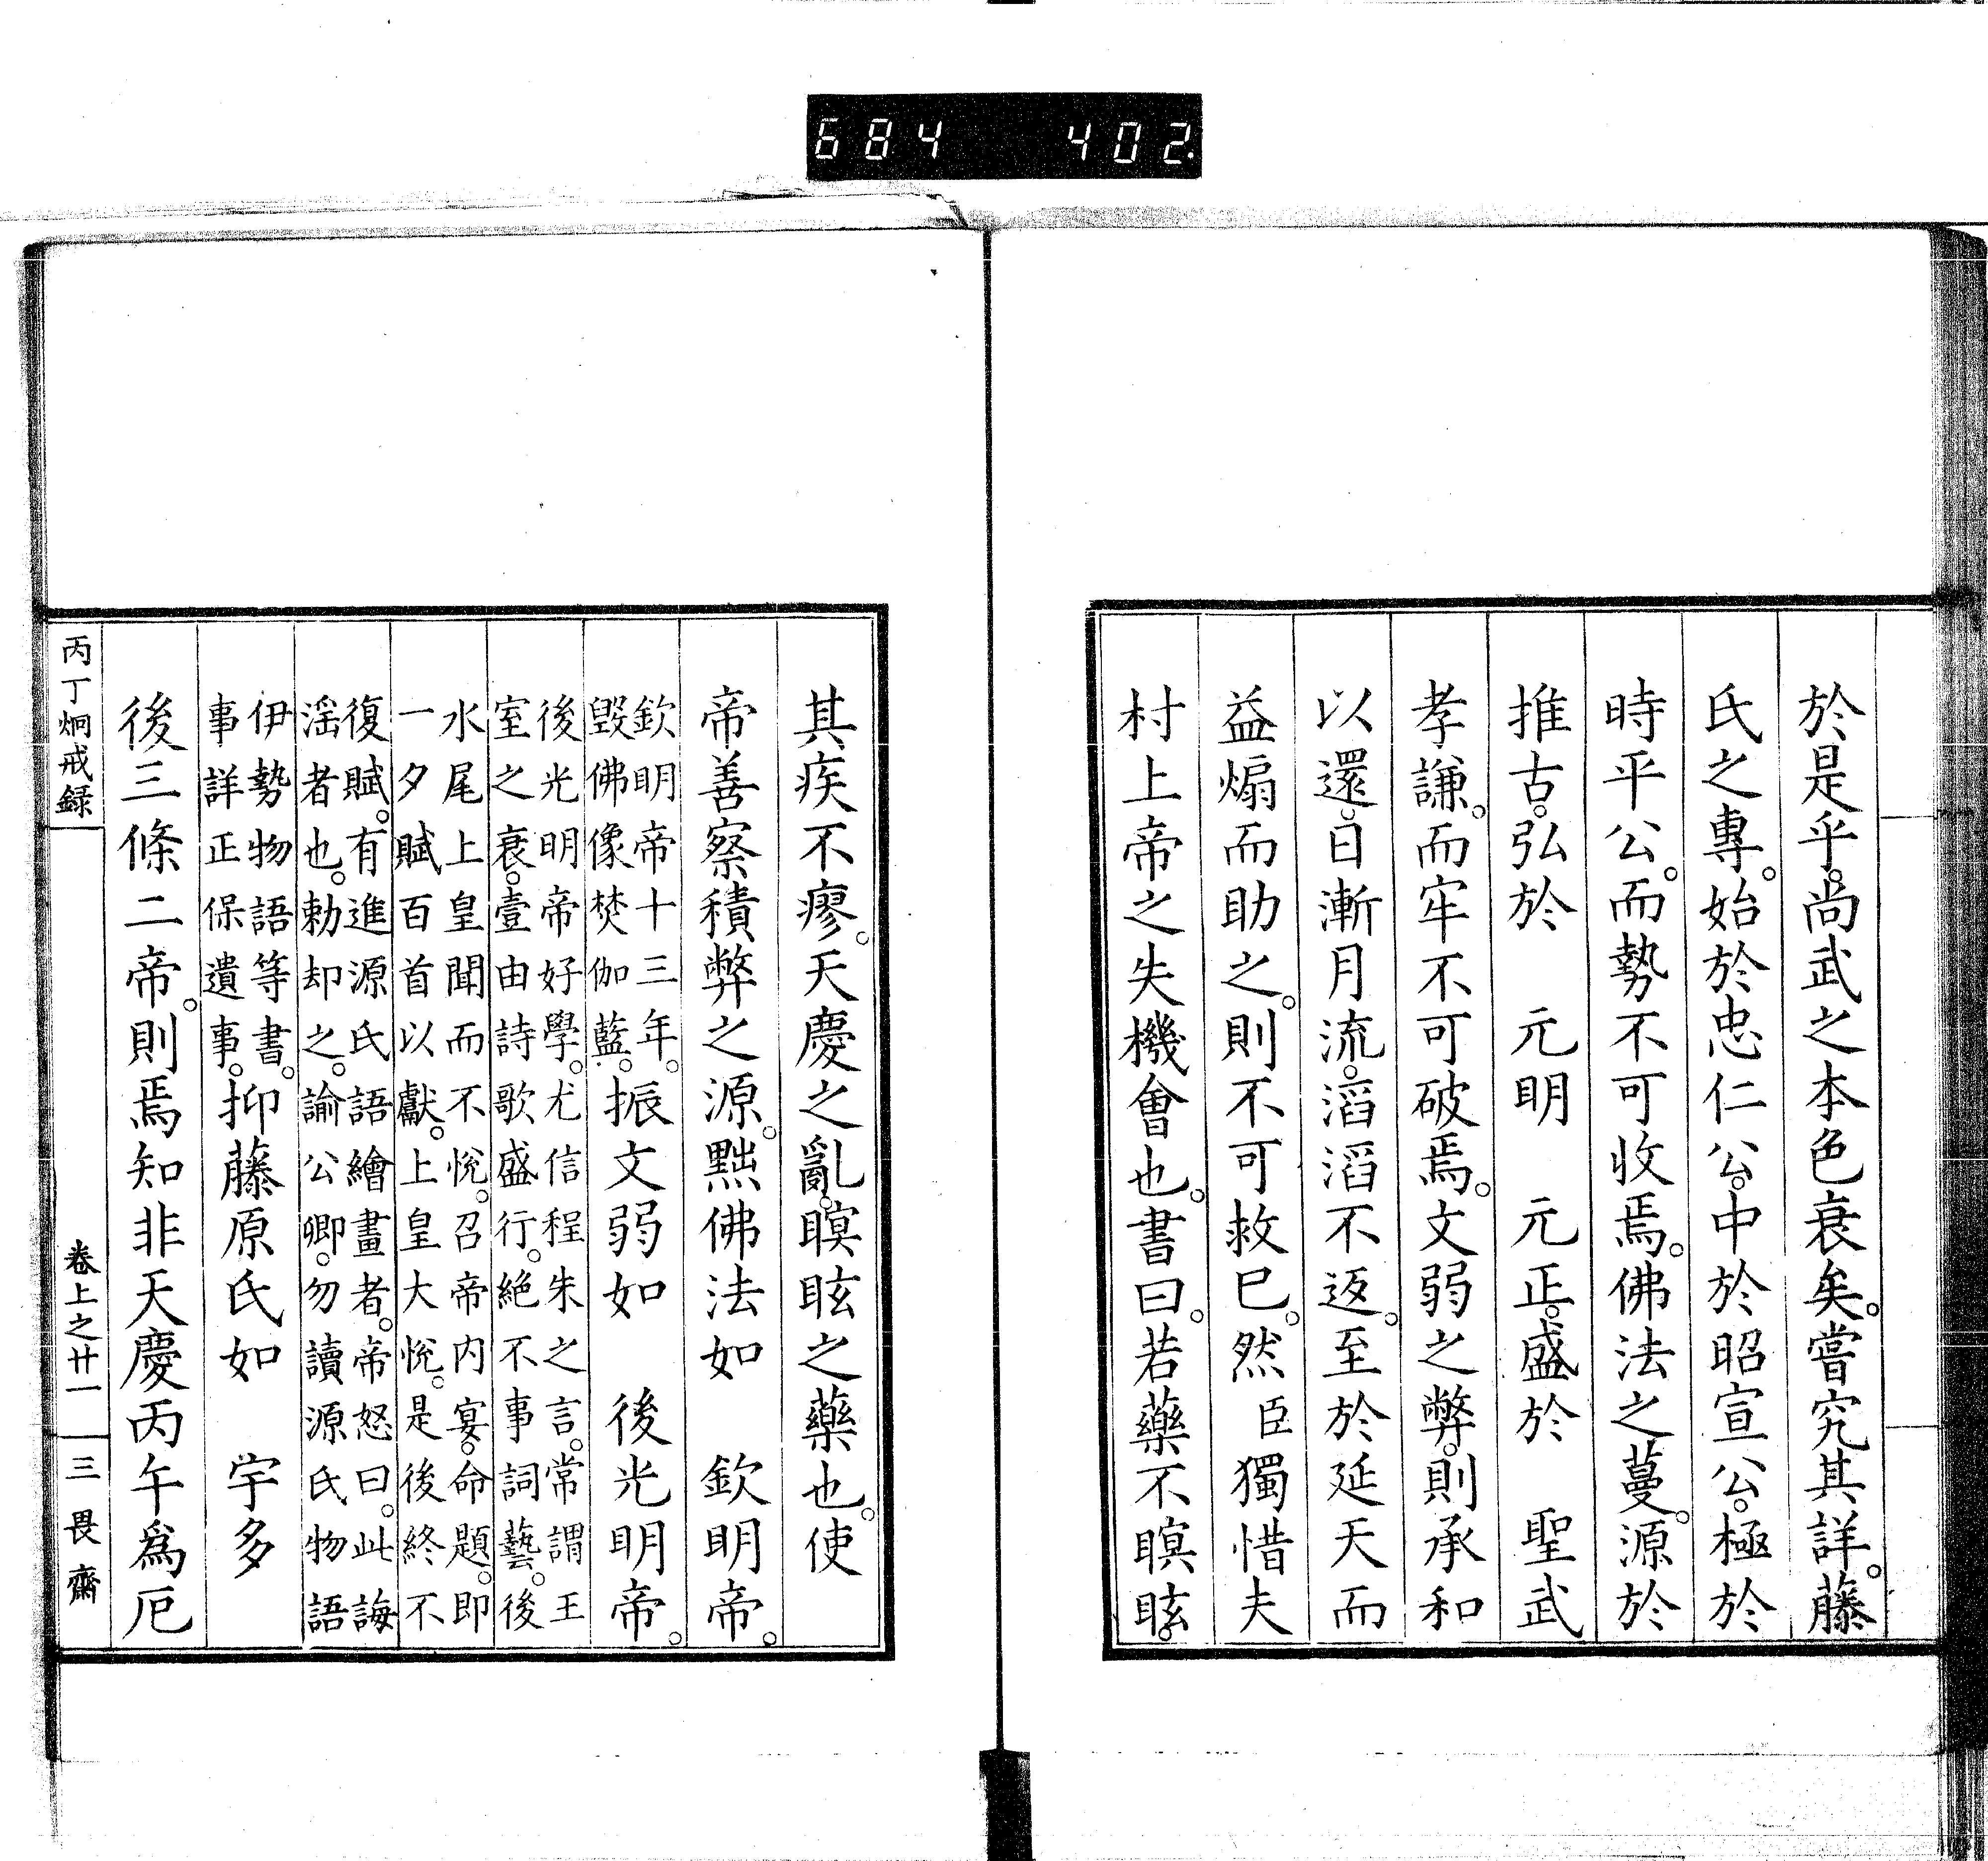 684 402.
於是乎。尚武之本色衰矣。嘗究其詳。藤
氏之專。始於忠仁公。中於昭宣公。極於
時平公。而勢不可收焉。佛法之蔓。源於
推古。弘於 元明 元正。盛於 聖武
孝謙。而牢不可破焉。文弱之弊。則承和
以還。日漸月流。滔滔不返。至於延天而
益煽而助之。則不可救已。然臣獨惜夫
村上帝之失機會也。書曰。若藥不瞑眩。
其疾不瘳。天慶之亂。瞑眩之藥也。使
帝善察積弊之源。黜佛法如 欽明帝。
欽明帝十三年。
毀佛像焚伽藍。
振文弱如 後光明帝。
後光明帝好學。尤信程朱之言。常謂王
室之衰。壹由詩歌盛行。絕不事詞藝。後
水尾上皇聞而不悅。召帝內宴。命題。即
一夕賦百首以獻。上皇大悅。是後終不
復賦。有進源氏語繪畫者。帝怒曰。此誨
淫者也。勅却之。諭公卿。勿讀源氏物語
伊勢物語等書。
事詳正保遺事。
抑藤原氏如 宇多
後三條二帝。則焉知非天慶丙午爲厄
丙丁炯戒録
卷上之廿一
三畏齋